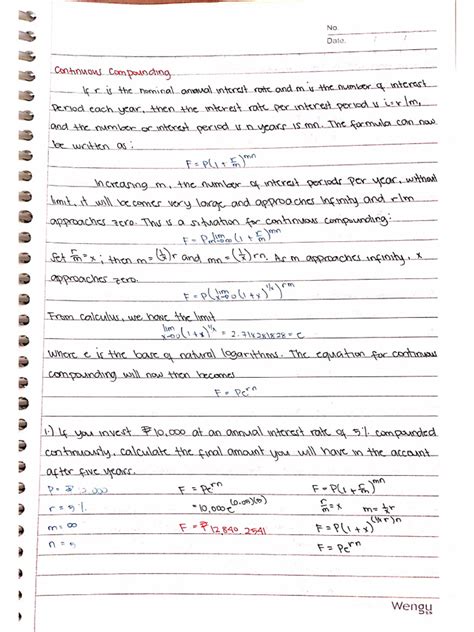 No.
Date. / /
Continuous Compounding
If r is the nominal annual interest rate and m is the number of interest
period each year, then the interest rate per interest period is i = r/m,
and the number or interest period is n years is mn. The formula can now
be written as:
F = P(1 + r/m)^mn
Increasing m, the number of interest periods per year, without
limit, it will becomes very large and approaches infinity and r/m
approaches zero. This is a situation for continuous compounding:
F = P lim m→∞ (1 + r/m)^mn
Set r/m = x; then m = (1/x)r and mn = (1/x)rn. As m approaches infinity, x
approaches zero.
F = P(lim x→0 (1+x)^1/x)^rn
From calculus, we have the limit
lim x→0 (1+x)^1/x = 2.718281828 = e
Where e is the base of natural logarithms. The equation for continuous
compounding will now then becomes
F = Pe^rn
1.) If you invest ₱10,000 at an annual interest rate of 5% compounded
continuously, calculate the final amount you will have in the account
after five years.
P = ₱10,000 F = Pe^rn F = P(1 + r/m)^mn
r = 5% = 10,000e^(0.05)(5) r/m = x m = 1/x r
m = ∞ F = ₱12,840.2541 F = P(1+x)^(1/x r)n
n = 5 F = Pe^rn
Wengu